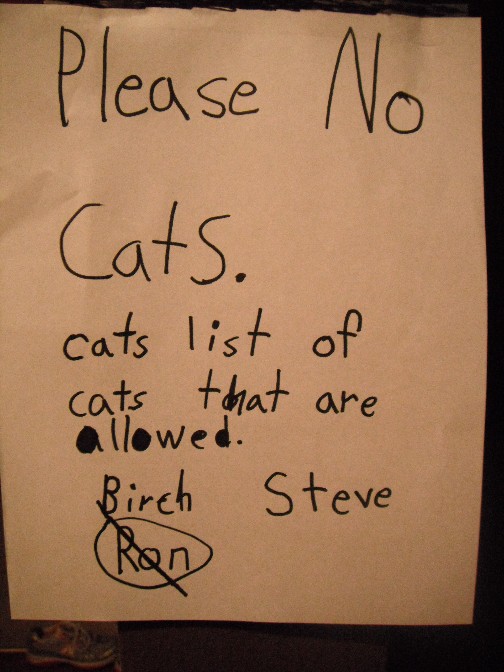 Please No
Cats.
cats list of
cats that are
allowed.
Birch Steve
Ron